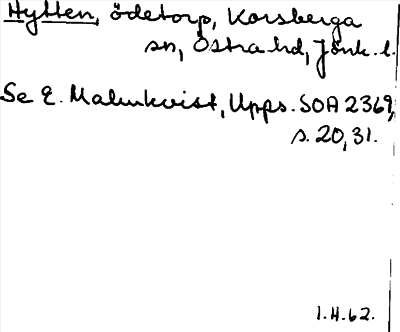 Hytten, ödetorp, Korsberga
sn, Östra hd, Jönk. l.
Se E. Malmkvist, Upps. SOA 2369,
s. 20, 31.
1.4.62.